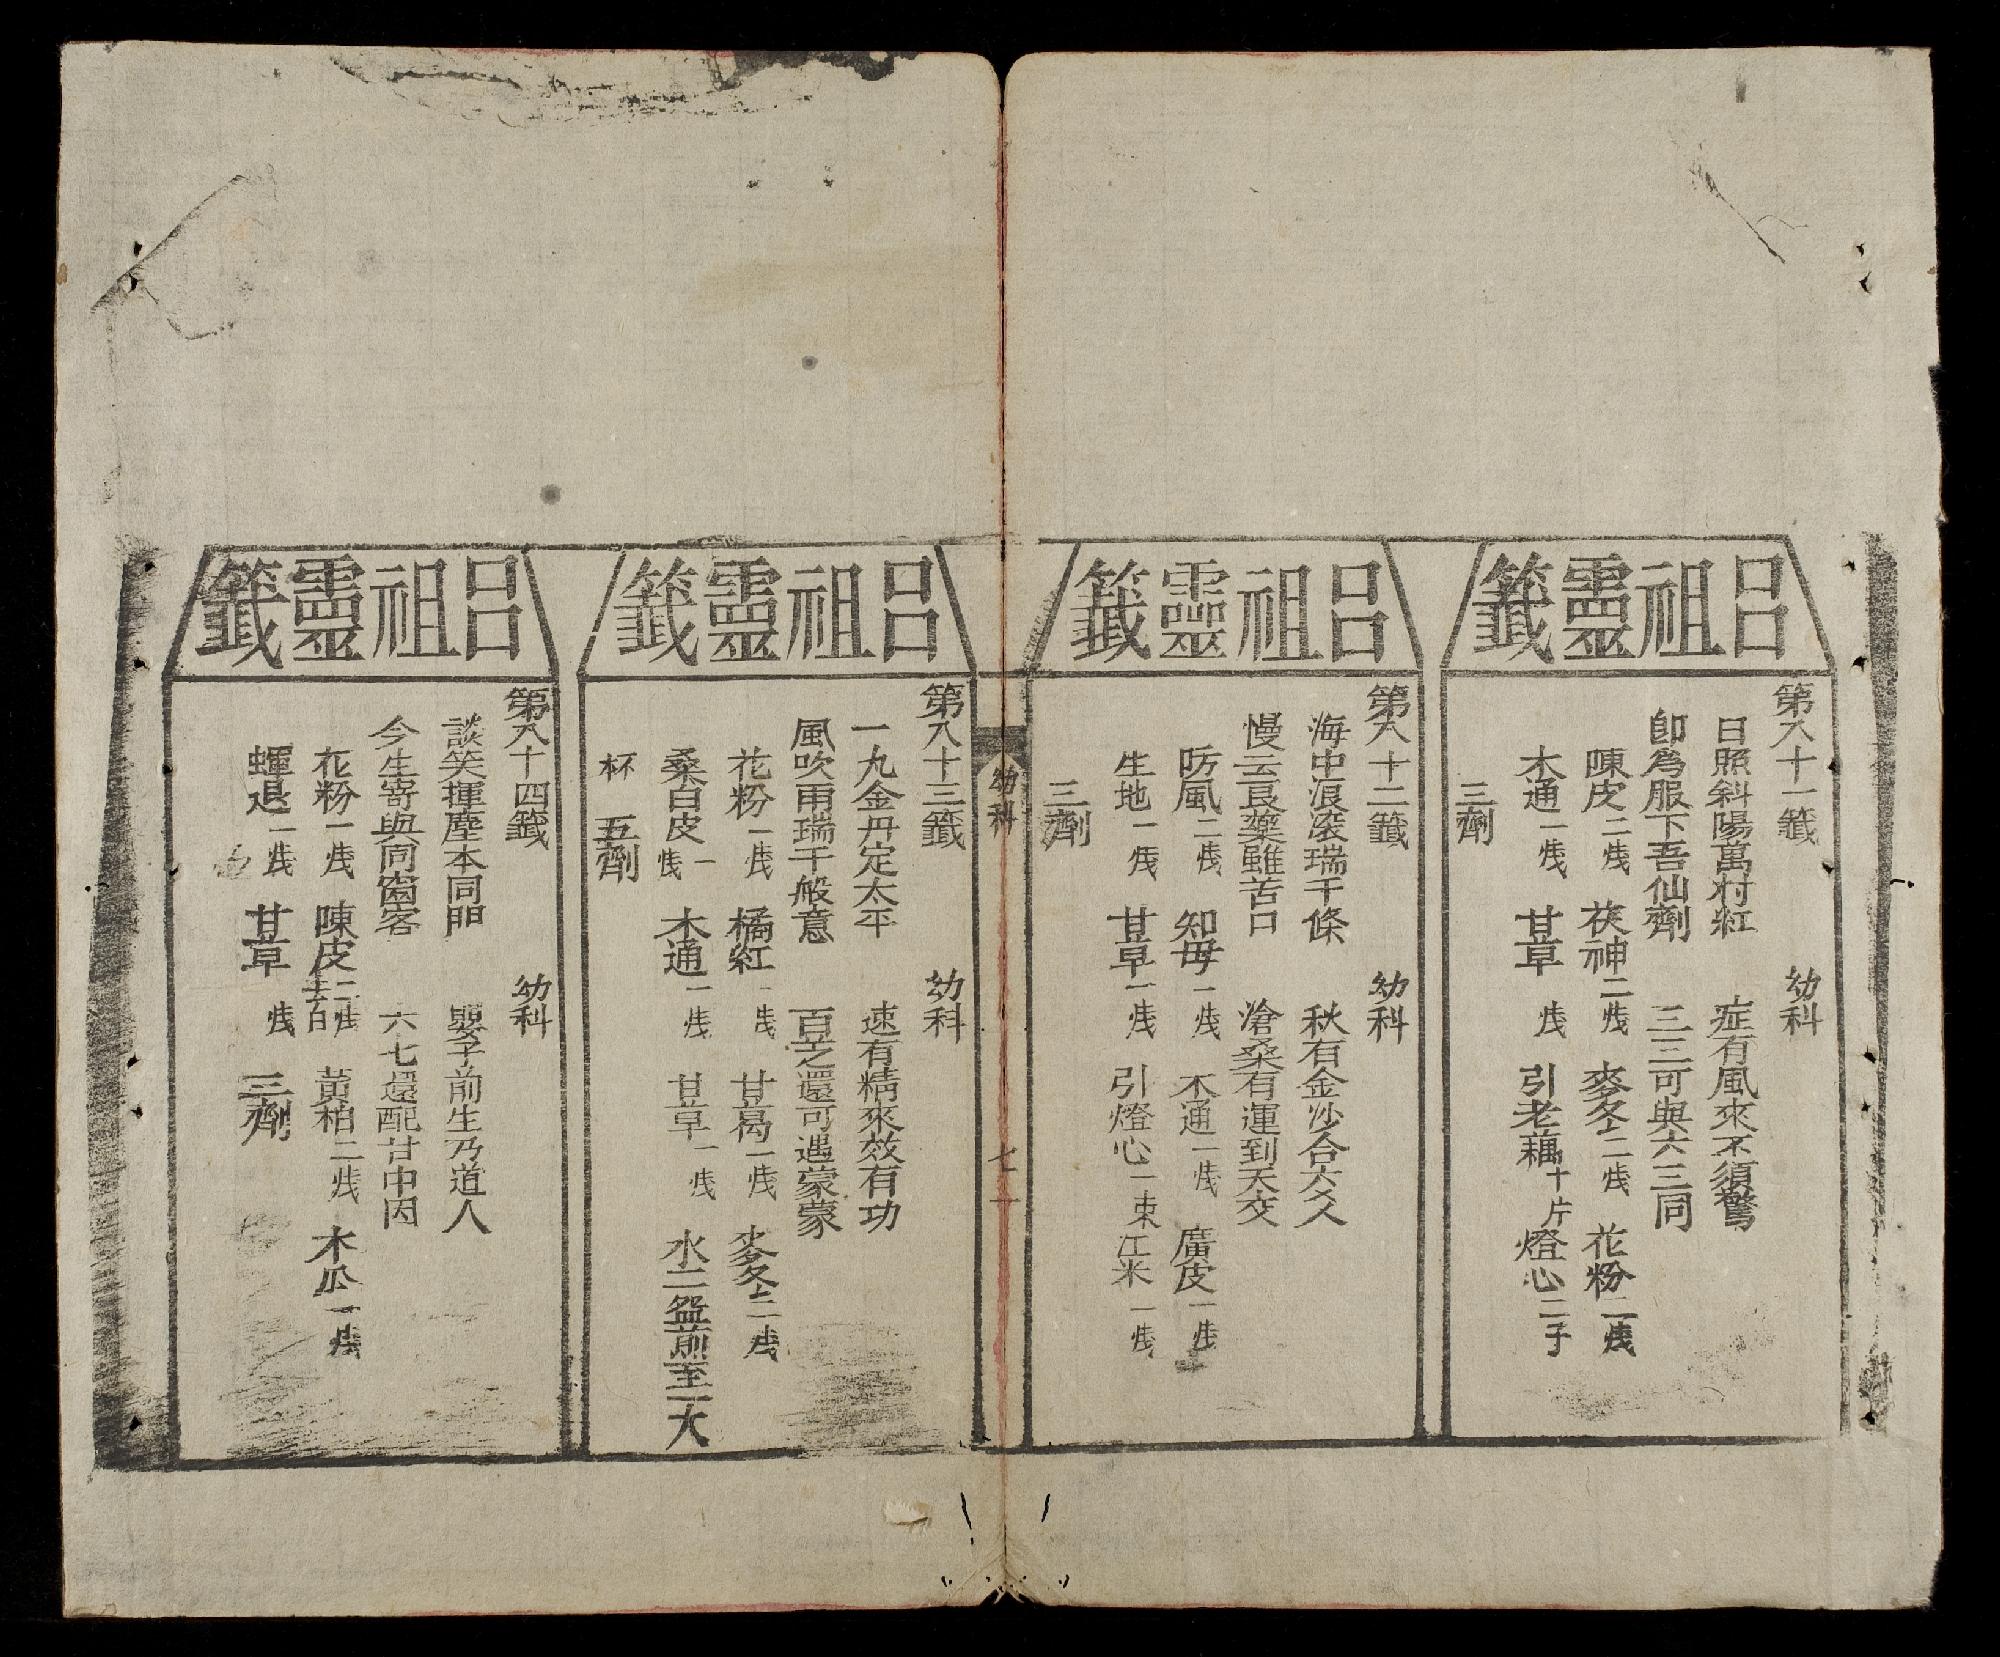 呂祖靈籤
第八十一籤 幼科
日照斜陽萬村紅 症有風來不須驚
卽爲服下吾仙劑 三三可與六三同
陳皮二戋 茯神二戋 麥冬二戋 花粉二戋
木通一戋 甘草一戋 引老藕十片燈心二子
三劑
呂祖靈籤
第八十二籤 幼科
海中浪滚瑞千條 秋有金沙合六爻
慢云良藥雖苦口 滄桑有運到天交
防風二戋 知母一戋 木通一戋 廣皮一戋
生地一戋 甘草一戋 引燈心一束江米一戋
三劑
幼科
七十一
呂祖靈籤
第八十三籤 幼科
一九金丹定太平 速有精來效有功
風吹雨瑞千般意 百芝還可遇蒙蒙
花粉一戋 橘紅一戋 甘葛一戋 麥冬二戋
桑白皮一戋 木通一戋 甘草一戋 水二盌前至一大
杯 五劑
呂祖靈籤
第八十四籤 幼科
談笑揮塵本同門 嬰子前生乃道人
今生寄與同窗客 六七還配甘中因
花粉一戋 陳皮二戋 黃柏二戋 木瓜一戋
蟬退一戋 甘草一戋 三劑